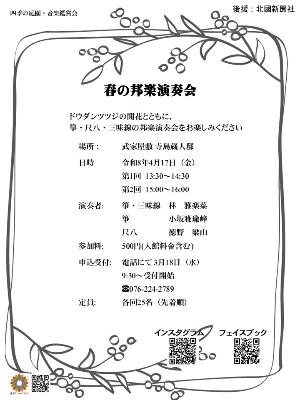 四季の庭園・音楽鑑賞会
後援：北國新聞社
春の邦楽演奏会
ドウダンツツジの開花とともに、
箏・尺八・三味線の邦楽演奏会をお楽しみください
場所： 武家屋敷 寺島蔵人邸
日時 令和8年4月17日（金）
第1回 13:30～14:30
第2回 15:00～16:00
演奏者: 箏・三味線 林 雅楽葉
箏 小坂雅瑜峰
尺八 徳野 梁山
参加料: 500円(入館料金含む)
申込受付: 電話にて3月18日（水）
9:30～受付開始
☎076-224-2789
定員: 各回25名（先着順）
インスタグラム フェイスブック